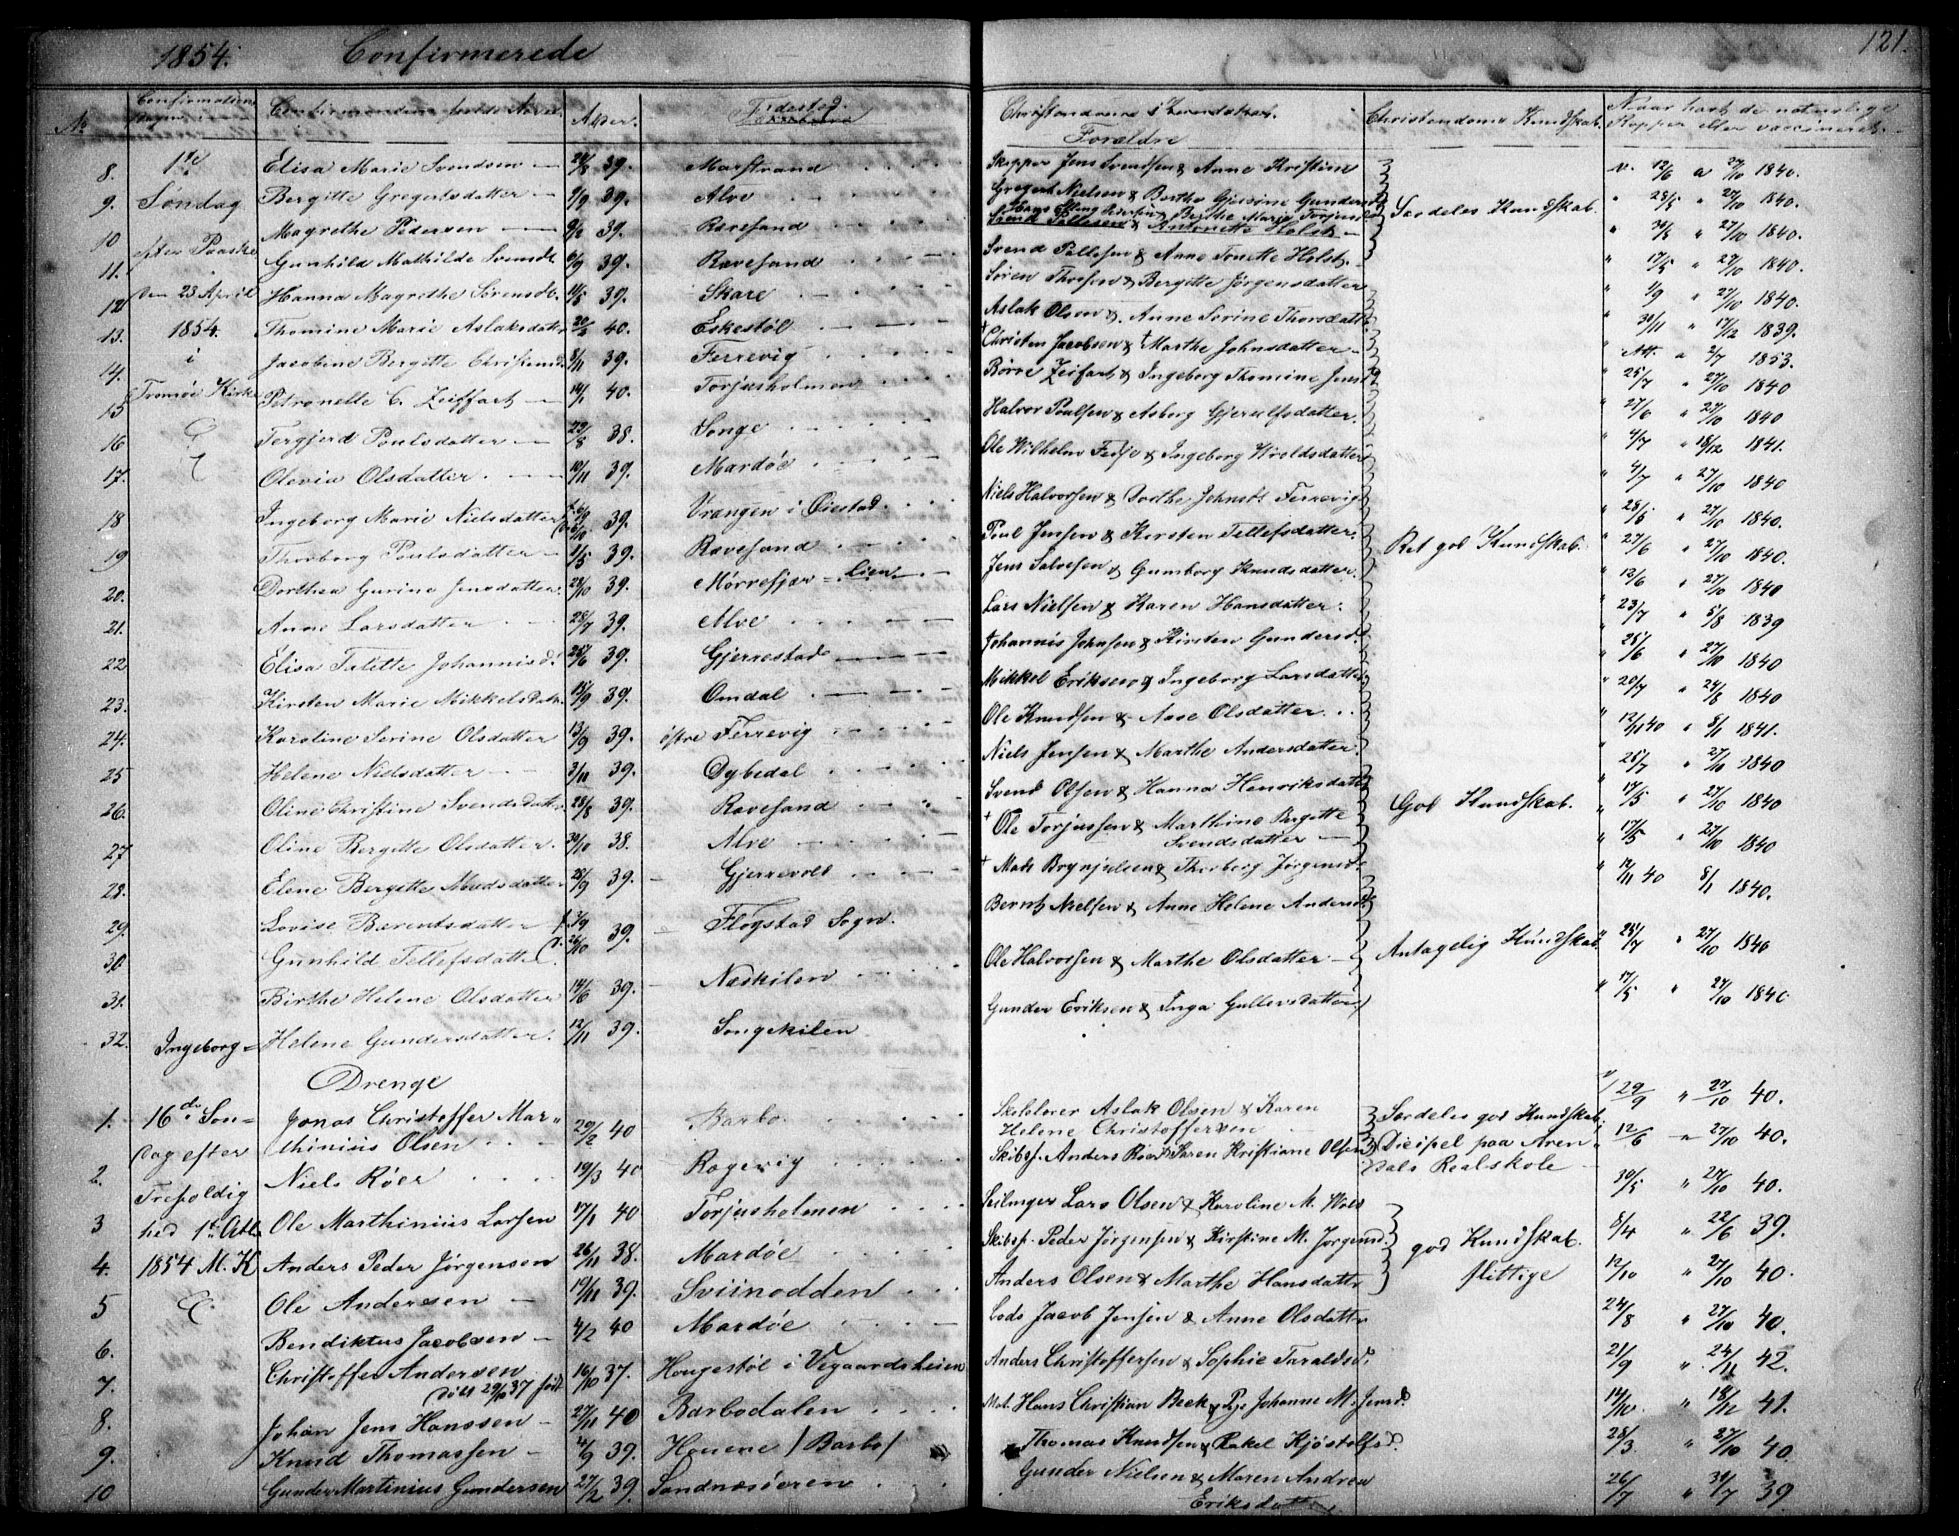 1854. Confirmerede
121.
No
Confirmations dagen
Confirmandens fulde Navn
Alder.
Fødested.
Forældre
Christendoms Kundskab.
Naar havt de naturlige Kopper eller vaccineret.
8. 1ste Elisa Marie Svendsen 39. Marstrand Skipper Jens Svendsen & Anne Kristine v. 12/6 a 27/10 1840.
9. Søndag Bergitte Gregertsdatter 9/9 39. Alve Gregert Nielsen & Berthe Særdeles Kundskab. " 27/10 1840.
10 efter Paaske Magrethe Pedersen 39. Ravesand Svend Pallesen & Antonette Holst " 27/10 1840.
11. Gunhild Mathilde Svensdt. 6/9 39. Ravesand Svend Pallesen & Anne Tonette Holst " 17/5 " 27/10 1840.
12 den 23 April Hanna Magrethe Sørensdt. 39. Skare Søren & Bergitte Jørgensdatter " 1/9 " 27/10 1840.
13. 1854. Thomine Marie Aslaksdatr 20/3 40. Eskestøl Aslak Olsen & Anne Serine Thorsdatt. " 30/11 " 17/12 1839.
14. i Jacobine Bergitte 8/11 39. Færrevig Christen Jacobsen & Marthe Johnsdatter Att. a 2/7 1853.
15 Tromøe Kirke Petronelle C. Zeiffart 14/1 40. Torjusholmen Børre Zeifart & Ingeborg Thomine " 25/7 " 27/10 1840
16 Tergjerd Poulsdatter 38. Songe Halvor Poulsen & Asborg Gjerulfsdatter. " 27/6 " 27/10 1840
17. Olevia Olsdatter. 10/11 39. Mardøe Ole Wilhelm & Ingeborg " 4/7 " 18/12 1841.
18 Ingeborg Marie Nielsdatter 39. Vrangen i Øiestad. Niels Halvorsen & Dorthe Johnsdt. Færrevig " 4/7 " 27/10 1840
19 Thorborg Poulsdatter 39. Ravesand Poul Jensen & Kirsten Tellefsdatter. Ret god Kundskab. " 28/5 " 27/10 1840.
20. Dorthea Gurine Jensdatter. 28/10 39. Mørrefjær = Lien Jens Salvesen & Gunborg Knudsdatter. " 27/6 " 27/10 1840.
21. Anne Larsdatter 28/7 39. Alve Lars Nielsen & Karen Hansdatter. " 12/6 " 27/10 1840
22 Elisa Talette Johannisd. 39. Gjerrestad Johannis Johnsen & Kirsten Gundersd. " 23/7 " 5/8 1839
23. Kirsten Marie Mikkelsdatr. 39. Omdal Mikkel Eriksen & Ingeborg Larsdatter. " 27/10 1840
24. Karoline Serine Olsdatter 13/9 39. østre Færrevig Ole Knudsen & Aase Olsdatter. " 20/7 " 1840
25 Helene Nielsdatter 3/10 39. Dybedal Niels Jensen & Marthe Andersdatter. " 12/11 40 " 8/1 1841.
26. Oline Christine Svendsdatter 28/8 39. Ravesand Svend Olsen & Hanna Henriksdatter God Kundskab. " 28/7 " 27/10 1840
27 Oline Bergitte Olsdatter. 30/10 38. Alve Ole Torjussen & Marthine Bergitte Svendsdatter " 17/5 " 27/10 1840
28. Elene Bergitte Madsdatter 28/9 39. Gjerrevold Mads Brynjulsen & Thorborg Jørgensd. " 17/5 " 27/10 1840
29. Lovise Bærentsdatter 39. Flogstad Sogn. Bernt Nielsen & Anne Helene Andersd. " 12/11 40 8/1 1840.
30. Gunhild Tellefsdatter
31. Birthe Helene Olsdatter 14/6 39. Næskilen Ole Halvorsen & Marthe Olsdatter Antagelig Kundskab " 28/7 " 27/10 1840
32. Ingeborg = Helene Gundersdatter. 12/11 39. Songekilen Gunder Eriksen & Inga Gullevsdatter " 17/5 " 27/10 1840
Drenge
1. 16de Søn= Jonas Christoffer Mar= thinius Olsen 29/2 40 Barbo Skibfører Aslak Olsen & Karen Helene Christoffersen Særdeles god Kundskab v/ 29/9 " 27/10 40.
2. dag efter Niels Röer 19/3 40 Rægevig Skibsf. Anders Röer & Karen Kristiane Olsen Discipel paa Aren dals Realskole 12/6 " 27/10 40.
3 Trefoldig hed 1st Octb. Ole Marthinius Larsen 17/1 40 Torjusholmen Seilmager Lars Olsen & Karoline M. 30/5 " 27/10 40.
4. 1854 M. K Anders Peder Jørgensen 26/11 38. Mardøe Skibsf. Peder Jørgensen & Kirstine M. Jørgensd. god Kundskab. 8/4 " 22/6 39.
5 Ole Andersen 19/11 39. Sviinodden Anders Olsen & Marthe Hansdatter flittige 12/10 " 27/10 40.
6. Bendiktus Jacobsen 4/2 40 Mardøe Lods Jacob Jensen & Anne Olsdatter 24/8 " 27/10 40.
7. Christoffer Andersen 16/10 37. Hougestøl i Vegaardsheien Anders Christoffersen & Sophie Taraldsd. 21/9 " 24/11 42.
døbt 29/10 37
8. Johan Jens Hanssen 27/11 40 Barbodalen Mat. Hans Christian Beck & Johanne M. Jensd. 14/10 " 18/12 41.
9. Knud Thomassen 9 39. Houene / Barbo / Thomas Knudsen & Rakel Kjøstolfsd. 28/3 " 27/10 40
10 Gunder Martinius Gundersen 27/2 39. Sandnæsøeren Gunder Nielsen & Maren Andrea Eriksdatter 26/7 " 30/7 39